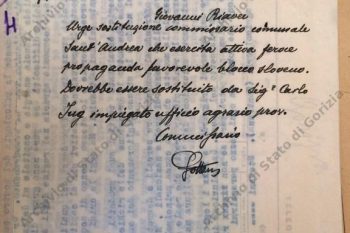 Giovanni
Urge sostituzione commissario comunale
Sant'Andrea che esercita attiva feroce
propaganda favorevole blocco sloveno.
Dovrebbe essere sostituito da Sigʳ Carlo
impiegato ufficio agrario prov.
Commissario
Archivio di Stato di Gorizia